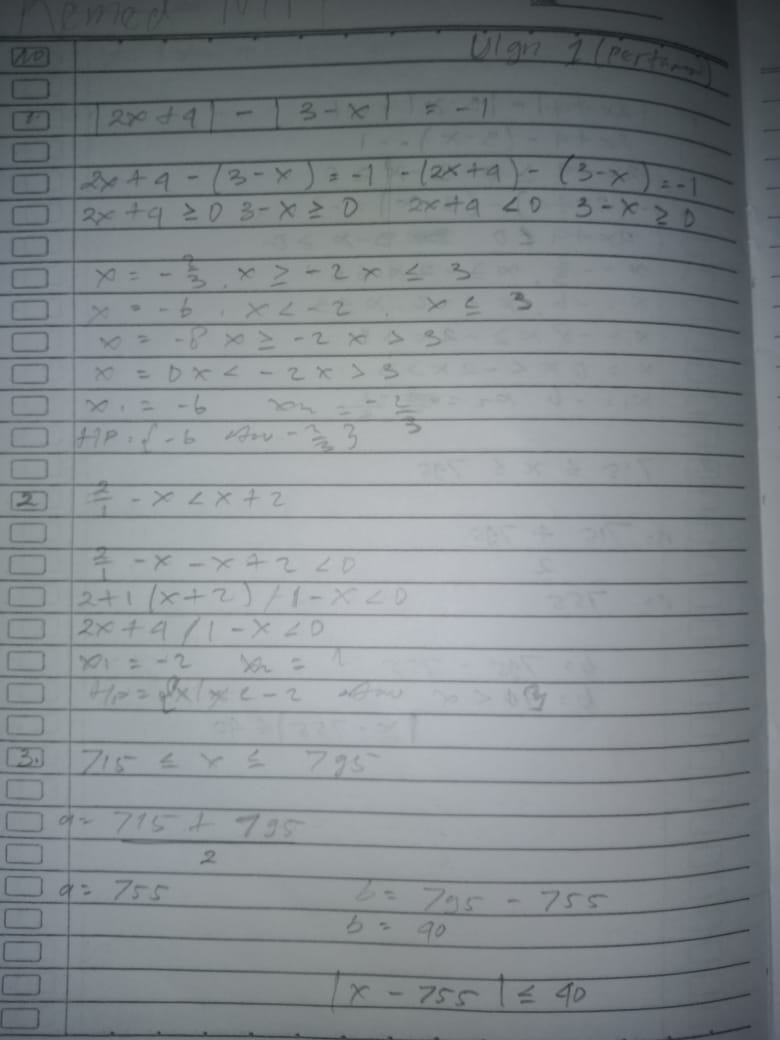 Remed
NO Ulgn 1 (Pertama)
1. |2x+4| - |3-x| = -1
2x+4 - (3-x) = -1 -(2x+4) - (3-x) = -1
2x+4 ≥ 0 3-x ≥ 0 2x+4 < 0 3-x ≥ 0
x = -2/3 . x ≥ -2 x ≤ 3
x = -6 . x < -2 . x ≤ 3
x = -8 x ≥ -2 x > 3
x = 0 x < -2 x > 3
x1 = -6 x2 = -2/3
HP = {-6 atau -2/3}
2 2/1 - x < x + 2
2/1 - x - x + 2 < 0
2+1 (x+2) / 1 - x < 0
2x + 4 / 1 - x < 0
x1 = -2 x2 = 1
Hp = {x|x < -2 atau
3. 715 ≤ x ≤ 795
a = 715 + 795
2
a = 755 b = 795 - 755
b = 40
|x - 755| ≤ 40